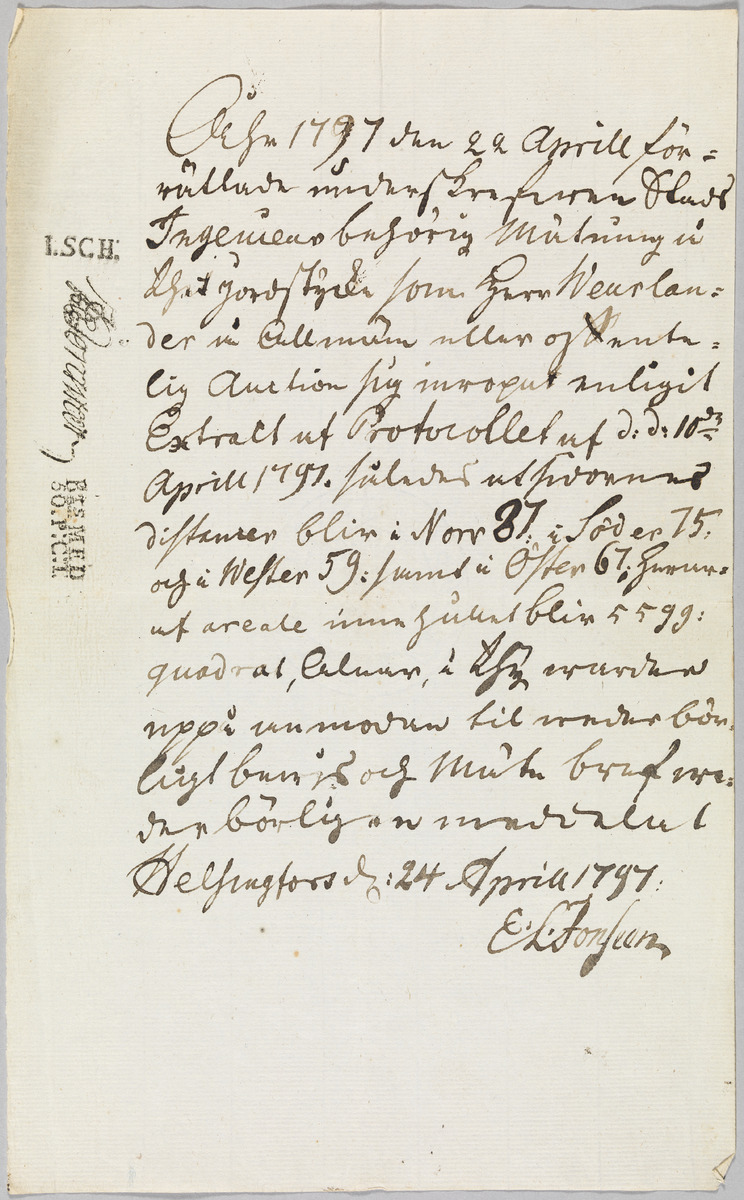 Åhr 1797 den 22 Aprill för=
rättade underskrefwen Stads
Ingenieur behörig Mätning å
thet jordstycke som Herr Weurlan=
der å Allmän eller offente=
lig Auction sig inropat enligit
Extract af Protocollet af d: d: 10de
Aprill 1797. således at sidornes
distancer blir i Norr 87: i Söder 75:
och i Wester 59: samt i Öster 67: hwar=
af areale innehullet blir 5599:
quadrat, Alnar, i thy warder
uppå anmodan til wederbör=
ligt bewis och Mäte bref we=
derbörligen meddelat
Helsingfors d: 24 Aprill 1797:
E: L: Jonsson
I.SCH.